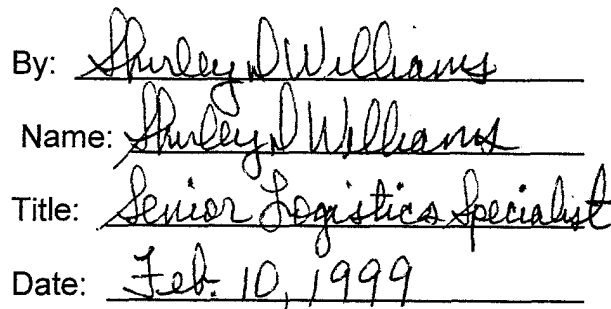 By: Shirley D Williams
Name: Shirley D Williams
Title: Senior Logistics Specialist
Date: Feb. 10, 1999